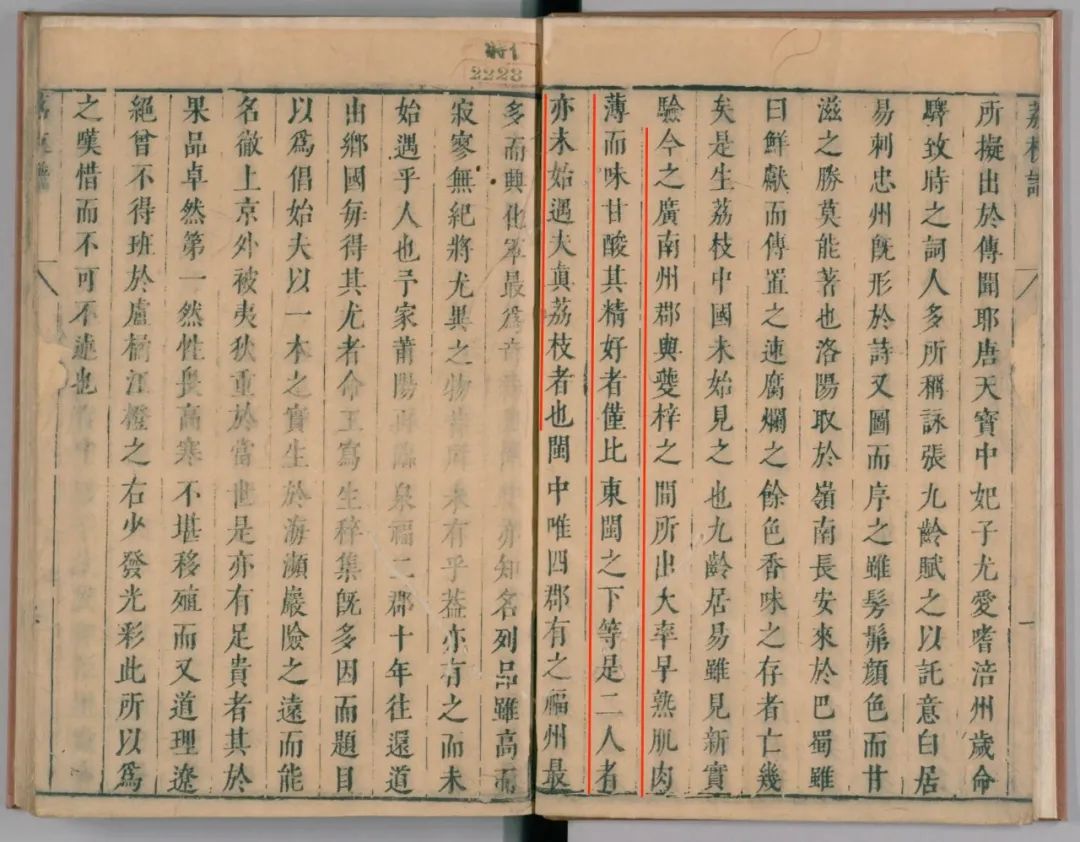 特1
2228
荔枝譜
一
所擬出於傳聞耶唐天寶中妃子尤愛嗜涪州歲命
驛致時之詞人多所稱詠張九齡賦之以託意白居
易刺忠州旣形於詩又圖而序之雖髣髴顏色而甘
滋之勝莫能著也洛陽取於嶺南長安來於巴蜀雖
曰鮮獻而傳置之速腐爛之餘色香味之存者亡幾
矣是生荔枝中國未始見之也九齡居易雖見新實
驗今之廣南州郡與夔梓之間所出大率早熟肌肉
薄而味甘酸其精好者僅比東閩之下等是二人者
亦未始遇夫眞荔枝者也閩中唯四郡有之福州最
多而興化軍最爲亦知名列品雖高而
寂寥無紀將尤異之物昔所未有乎葢亦有之而未
始遇乎人也予家莆陽再臨泉福二郡十年往還道
由鄉國每得其尤者命工寫生稡集旣多因而題目
以爲倡始夫以一本之實生於海瀕巖險之遠而能
名徹上京外被夷狄重於當世是亦有足貴者其於
果品卓然第一然性畏高寒不堪移殖而又道理遼
絕曾不得班於盧橘江橙之右少發光彩此所以爲
之嘆惜而不可不述也